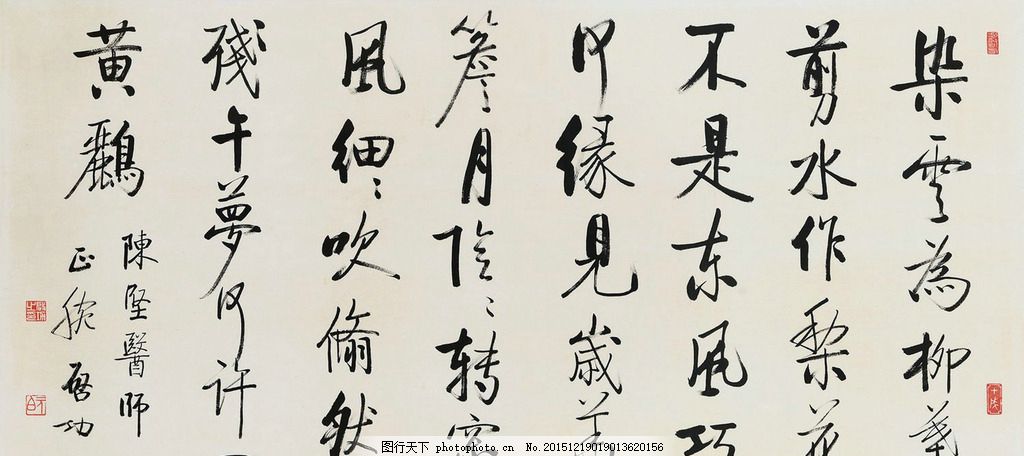 染雲為柳葉
剪水作梨花
不是東風巧
何緣見歲華
簷月陰陰轉窗
風細細吹翛然
殘午夢何許
黃鸝
陳堅醫師
正腕 啓功
图行天下 photophoto.cn No.20151219019013620156